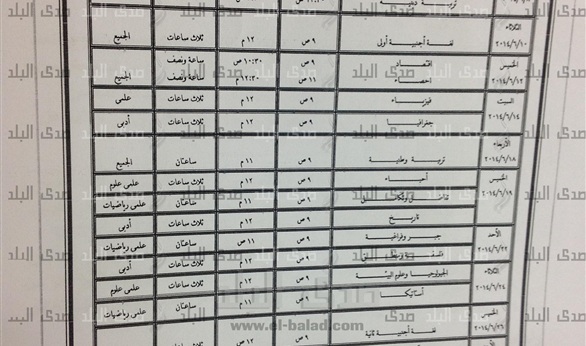 تربية دينية
الثلاثاء ٢٠١٤/٦/١٠ لغة أجنبية أولى ٩ ص ١٢ م ثلاث ساعات الجميع
الخميس ٢٠١٤/٦/١٢ اقتصاد ٩ ص ١٠:٣٠ ص ساعة ونصف
احصاء ١١ ص ١٢:٣٠ م ساعة ونصف الجميع
السبت ٢٠١٤/٦/١٤ فيزياء ٩ ص ١٢ م ثلاث ساعات علمى
جغرافيا ٩ ص ١٢ م ثلاث ساعات أدبى
الأربعاء ٢٠١٤/٦/١٨ تربية وطنية ٩ ص ١١ م ساعتان الجميع
الخميس ٢٠١٤/٦/١٩ أحياء ٩ ص ١٢ م ثلاث ساعات علمى علوم
٩ ص ١١ م ساعتان علمى رياضيات
تاريخ ٩ ص ١٢ م ثلاث ساعات أدبى
الأحد ٢٠١٤/٦/٢٢ جبر وفراغية ٩ ص ١١ ص ساعتان علمى رياضيات
فلسفة ٩ ص ١٢ م ثلاث ساعات أدبى
الثلاثاء ٢٠١٤/٦/٢٤ الجيولوجيا وعلوم البيئة ٩ ص ١٢ م ثلاث ساعات علمى علوم
أستاتيكا ٩ ص ١١ م ساعتان علمى رياضيات
الخميس ٢٠١٤/٦/٢٦ لغة أجنبية ثانية ٩ ص ١٢ م ثلاث ساعات
صدى البلد
www.el-balad.com